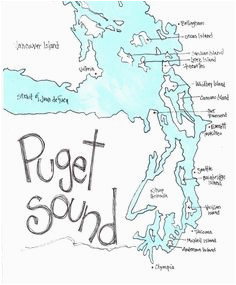 Bellingham
Vancouver Island
Orcas Island
San Juan Island
Lopez Island
Anacortes
Victoria
Whidbey Island
Strait of Juan de Fuca
Camano Island
Port
Townsend
Everett
Puget
Sound
Seattle
Bainbridge
Island
Kitsap
Peninsula
Vashon
Island
Tacoma
McNeil Island
Anderson Island
Olympia